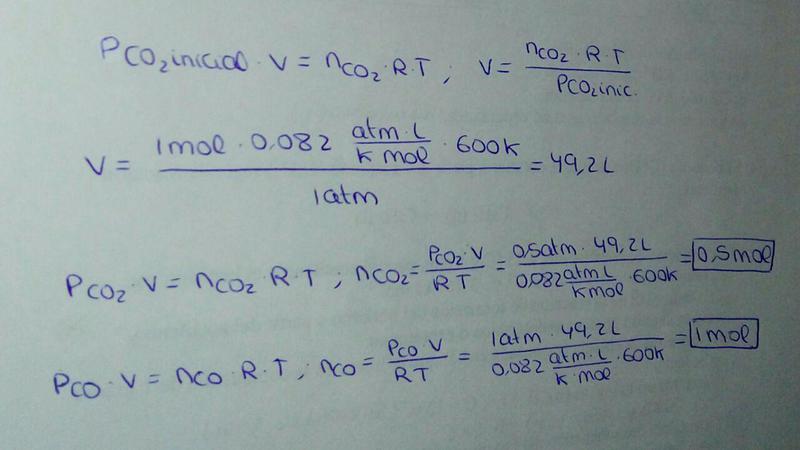 PCO₂inicial · V = nCO₂ · R·T ; V = nCO₂ · R·T / PCO₂inic.
V = 1mol · 0,082 atm·L / K mol · 600K / 1atm = 49,2L
PCO₂ · V = nCO₂ · R·T ; nCO₂ = PCO₂·V / RT = 0,5atm · 49,2L / 0,082 atm L / K mol · 600K = 0,5mol
PCO · V = nCO · R·T ; nCO = PCO·V / RT = 1atm · 49,2L / 0,082 atm·L / K·mol · 600K = 1mol